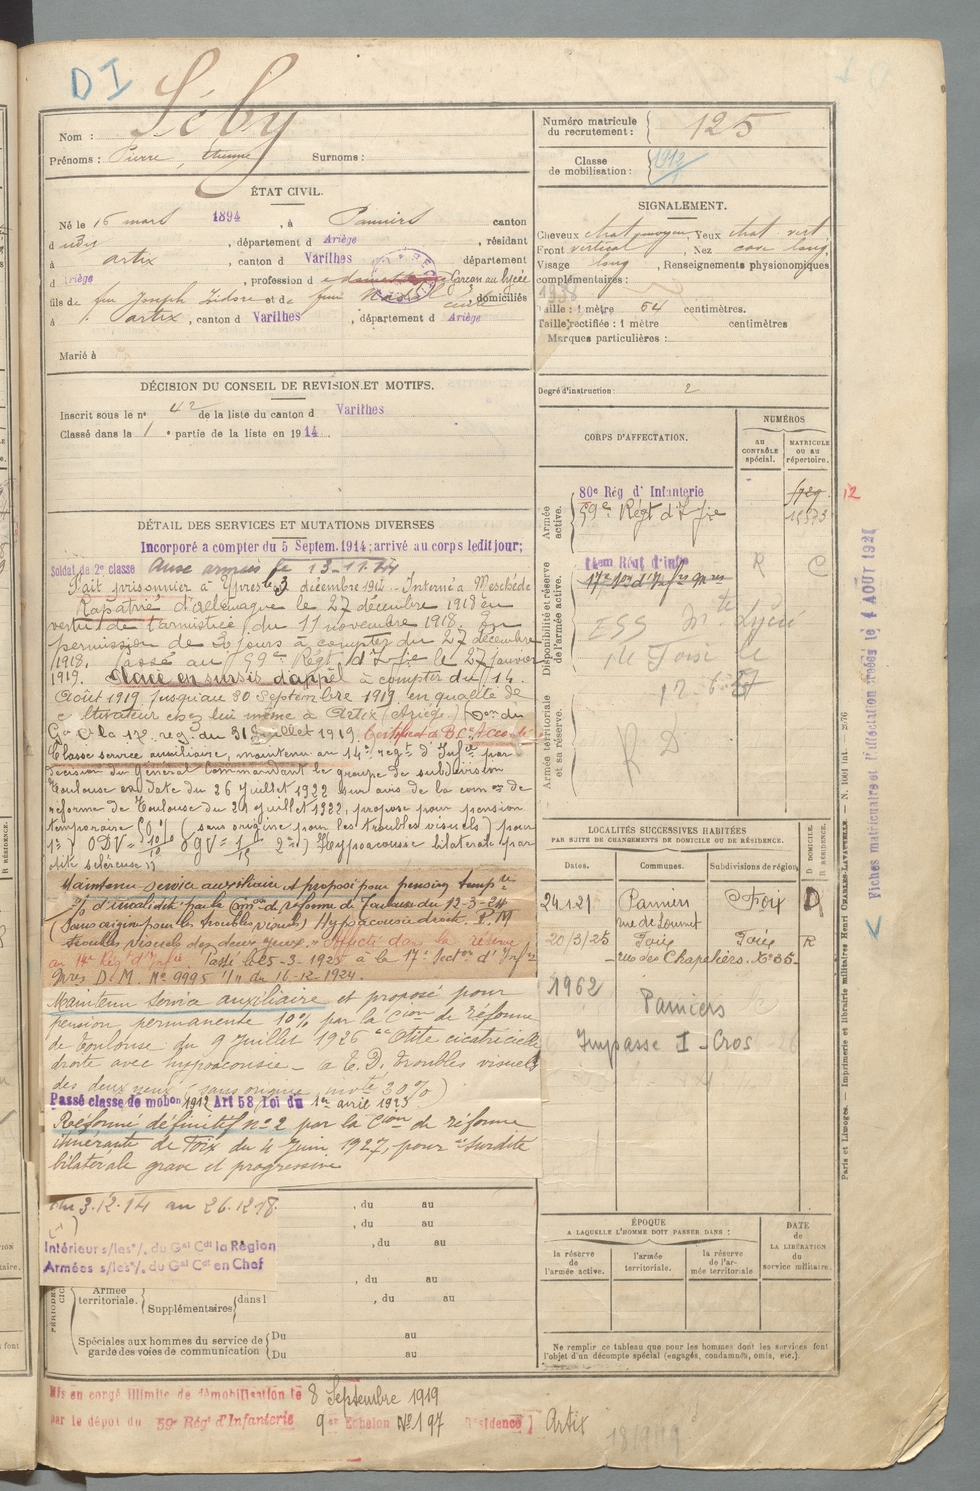 DI
Nom : Séby
Prénoms : Pierre, Etienne Surnoms :
ÉTAT CIVIL.
Né le 16 mars 1894, à Pamiers canton
dudit, département d Ariège, résidant
à Artix, canton d Varilhes département
d Ariège, profession de Garçon au lycée
fils de feu Joseph Isidore et de feue domiciliés
à Artix, canton d Varilhes, département d Ariège
Marié à
DÉCISION DU CONSEIL DE RÉVISION ET MOTIFS.
Inscrit sous le n° 42 de la liste du canton d Varilhes
Classé dans la 1 e partie de la liste en 1914
DÉTAIL DES SERVICES ET MUTATIONS DIVERSES
Incorporé a compter du 5 Septem. 1914; arrivé au corps ledit jour;
Soldat de 2e classe Aux armées le 13-11-14
Fait prisonnier à Ypres le 3 décembre 1914. Interné à Meschede
Rapatrié d'Allemagne le 27 décembre 1918 en
vertu de l'armistice du 11 novembre 1918. En
permission de 30 jours à compter du 27 décembre
1918. Passé au 59e Régt d'Infie le 27 janvier
1919. Placé en sursis d'appel à compter du 14
Août 1919 jusqu'au 30 Septembre 1919 en qualité de
cultivateur chez lui même à Artix (Ariège) (Don du
Gal Ct la 17e reg. du 31 juillet 1919. Certificat de B. Cte Accordé
Classé service auxiliaire, maintenu au 14e regt d'Infie par
décision du Général Commandant le groupe de subdivision
Toulouse en date du 26 Juillet 1922 sur avis de la comon de
réforme de Toulouse du 21 juillet 1922, proposé pour pension
temporaire 10% (sans origine pour les troubles visuels) pour
1°) ODV= 10/10 OGV= 1/15 2°) Hypoacousie bilatérale par
otite scléreuse
Maintenu service auxiliaire et proposé pour pension tempre
% d'invalidité par la Con de réforme de Toulouse du 12-3-24
(Sans origine pour les troubles visuels) Hypoacousie droite. P.M
troubles visuels des deux yeux. Affecté dans la réserve
au 14e Rég. d'Infie. Passé le 25-3-1925 à la 17e Secton d'Infres
Mres D.M. No 9995 1/7 du 16-12-1924.
Maintenu Service auxiliaire et proposé pour
pension permanente 10% par la Cion de réforme
de Toulouse du 9 Juillet 1926 "Otite cicatricielle
droite avec hypoacousie - a E.D. troubles visuels
des deux yeux (sans origine, invté 30%)
Passé classe de mobon 1912 Art 58 Loi du 1er avril 1923
Réformé définitif n° 2 par la Cion de réforme
itinérante de Foix du 4 Juin 1927, pour "surdité
bilatérale grave et progressive
du 3.12.14 au 26.12.18.
, du au
, du au
Intérieur s/les o/. du Gal Cdt la Région
, du au
Armées s/les o/. du Gal Cdt en Chef
, du au
Armée territoriale. Supplémentaires dans l , du au
Spéciales aux hommes du service de garde des voies de communication Du au
Du au
Mis en congé illimité de démobilisation le 8 Septembre 1919
par le dépôt du 59e Rég' d'Infanterie 9e Echelon No 197 Résidence Artix
Numéro matricule du recrutement : 125
Classe de mobilisation : 1912
SIGNALEMENT.
Cheveux chat moyen, Yeux chat vert
Front vertical, Nez cave long
Visage long, Renseignements physionomiques
complémentaires :
Taille : 1 mètre 64 centimètres.
Taille rectifiée : 1 mètre centimètres
Marques particulières :
Degré d'instruction : 2
CORPS D'AFFECTATION.
NUMÉROS
AU CONTRÔLE spécial.
MATRICULE OU AU répertoire.
Armée active.
80e Rég d' Infanterie
59e Régt d'Infie 18573
12
Disponibilité et réserve de l'armée active.
14em Régt d'Infie R C
17e Son d'Infres Mres
Lycée
de Foix le
12-6-27
Armée territoriale et sa réserve.
R D
LOCALITÉS SUCCESSIVES HABITÉES
PAR SUITE DE CHANGEMENTS DE DOMICILE OU DE RÉSIDENCE.
D DOMICILE.
R RÉSIDENCE.
Dates. Communes. Subdivisions de région
24121 Pamiers Foix D
rue de Loumet
20/3/25 Foix Foix R
rue des Chapeliers. No 35
1962 Pamiers
Impasse I - Cros
ÉPOQUE
A LAQUELLE L'HOMME DOIT PASSER DANS :
DATE DE LA LIBÉRATION du service militaire.
la réserve de l'armée active.
l'armée territoriale.
la réserve de l'armée territoriale
Ne remplir ce tableau que pour les hommes dont les services font
l'objet d'un décompte spécial (engagés, condamnés, omis, etc.).
Fiches matriculaire et d'affectation créées le 4 AOUT 1927
Paris et Limoges. — Imprimerie et librairie militaires Henri CHARLES-LAVAUZELLE.